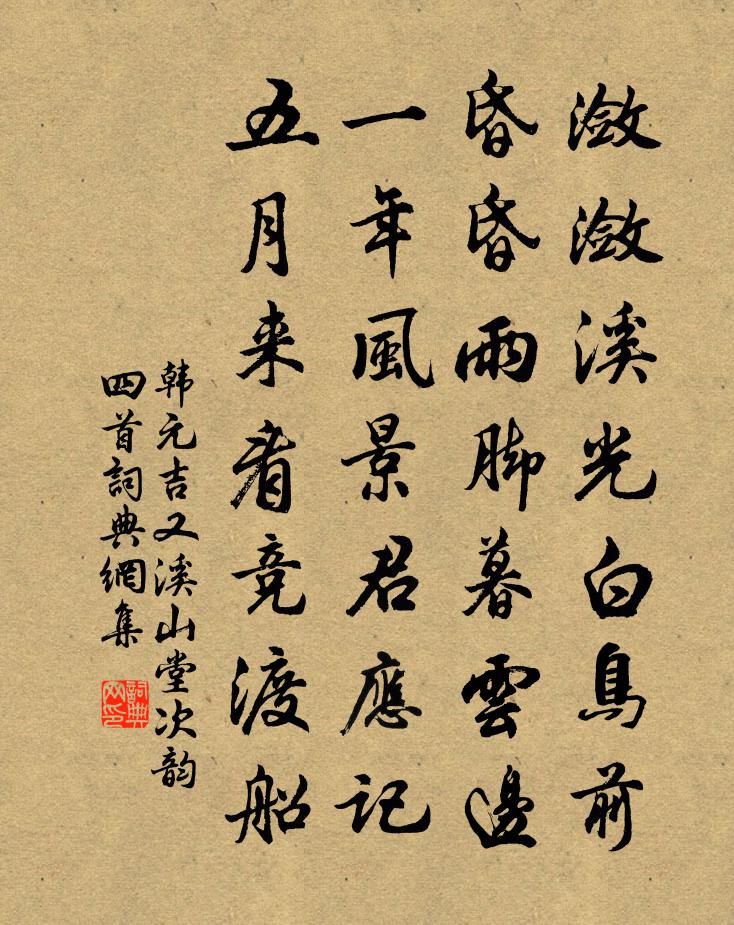 瀲瀲溪光白鳥前
昏昏雨脚暮雲邊
一年風景君應記
五月来看競渡船
韩元吉又溪山堂次韵
四首詞典網集
詞典网印